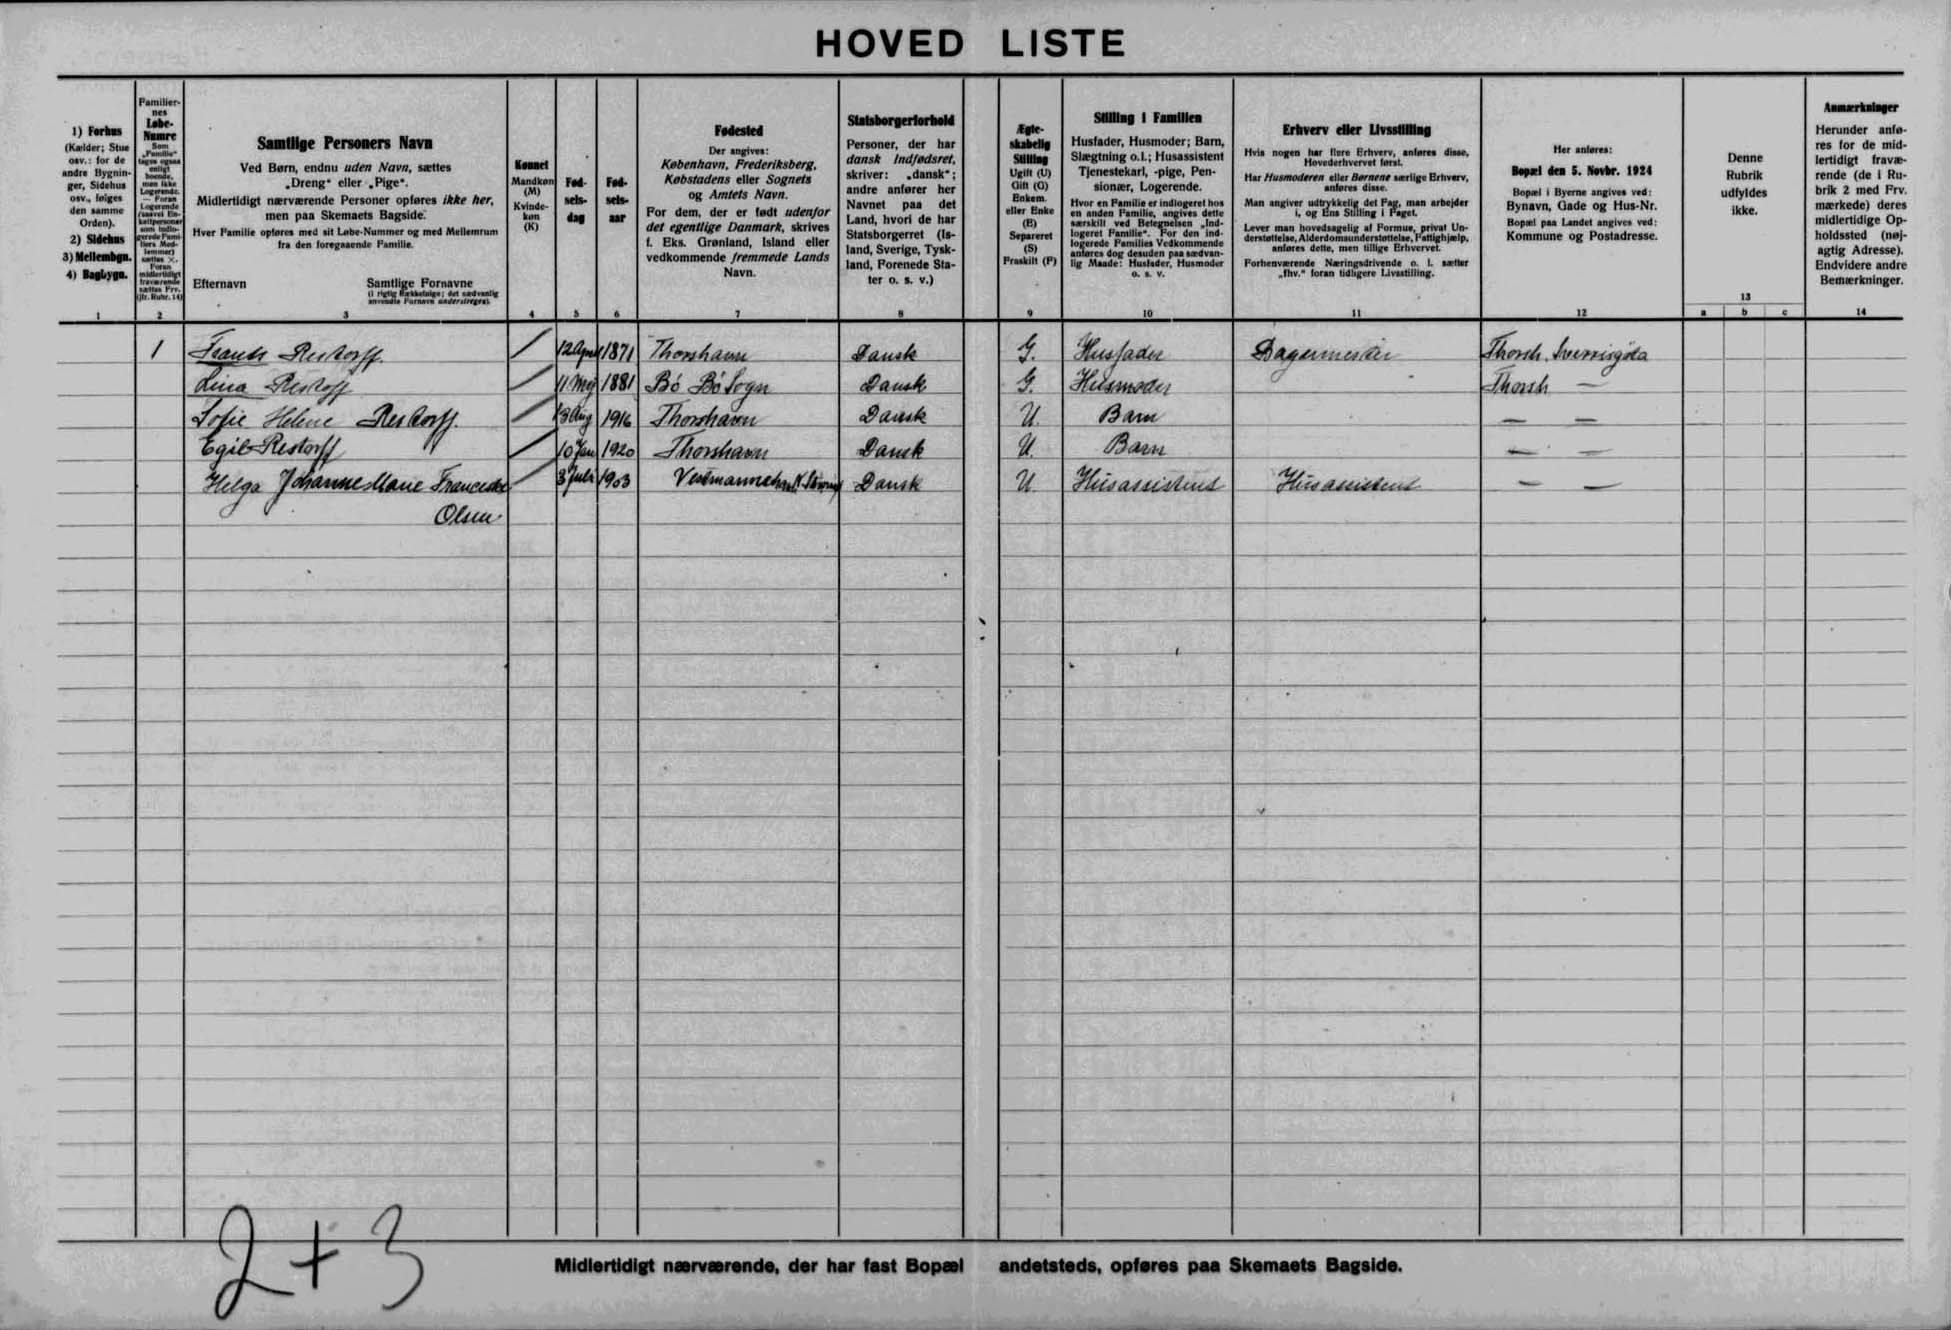 HOVED LISTE
1) Forhus
(Kælder; Stue
osv.: for de
andre Bygnin-
ger, Sidehus
osv., følges
den samme
Orden).
2) Sidehus
3) Mellembgn.
4) Bagbygn.
1
Familier-
nes
Løbe-
Numre
Som
„Familie“
tages ogsaa
enligt
boende,
men ikke
Logerende.
— Foran
Logerende
(saavel En-
keltpersoner
som indlo-
gerede Fami-
liers Med-
lemmer)
sættes ×.
Foran
midlertidigt
fraværende
sættes Frv.
(jfr. Rubr. 14)
2
Samtlige Personers Navn
Ved Børn, endnu uden Navn, sættes
„Dreng“ eller „Pige“.
Midlertidigt nærværende Personer opføres ikke her,
men paa Skemaets Bagside.
Hver Familie opføres med sit Løbe-Nummer og med Mellemrum
fra den foregaaende Familie.
Efternavn Samtlige Fornavne
(i rigtig Rækkefølge; det sædvanlig
anvendte Fornavn understreges).
3
Kønnet
Mandkøn
(M)
Kvinde-
køn
(K)
4
Fød-
sels-
dag
5
Fød-
sels-
aar
6
Fødested
Der angives:
København, Frederiksberg,
Købstadens eller Sognets
og Amtets Navn.
For dem, der er født udenfor
det egentlige Danmark, skrives
f. Eks. Grønland, Island eller
vedkommende fremmede Lands
Navn.
7
Statsborgerforhold
Personer, der har
dansk Indfødsret,
skriver: „dansk“;
andre anfører her
Navnet paa det
Land, hvori de har
Statsborgerret (Is-
land, Sverige, Tysk-
land, Forenede Sta-
ter o. s. v.)
8
Ægte-
skabelig
Stilling
Ugift (U)
Gift (G)
Enkem.
eller Enke
(E)
Separeret
(S)
Fraskilt (F)
9
Stilling i Familien
Husfader, Husmoder; Barn,
Slægtning o.l.; Husassistent
Tjenestekarl, -pige, Pen-
sionær, Logerende.
Hvor en Familie er indlogeret hos
en anden Familie, angives dette
særskilt ved Betegnelsen „Ind-
logeret Familie“. For den ind-
logerede Families Vedkommende
anføres dog desuden paa sædvan-
lig Maade: Husfader, Husmoder
o. s. v.
10
Erhverv eller Livsstilling
Hvis nogen har flere Erhverv, anføres disse,
Hovederhvervet først.
Har Husmoderen eller Børnene særlige Erhverv,
anføres disse.
Man angiver udtrykkelig det Fag, man arbejder
i, og Ens Stilling i Faget.
Lever man hovedsagelig af Formue, privat Un-
derstøttelse, Alderdomsunderstøttelse, Fattighjælp,
anføres dette, men tillige Erhvervet.
Forhenværende Næringsdrivende o. l. sætter
„fhv.“ foran tidligere Livsstilling.
11
Her anføres:
Bopæl den 5. Novbr. 1924
Bopæl i Byerne angives ved:
Bynavn, Gade og Hus-Nr.
Bopæl paa Landet angives ved:
Kommune og Postadresse.
12
Denne
Rubrik
udfyldes
ikke.
13
a b c
Anmærkninger
Herunder anfø-
res for de mid-
lertidigt fravæ-
rende (de i Ru-
brik 2 med Frv.
mærkede) deres
midlertidige Op-
holdssted (nøj-
agtig Adresse).
Endvidere andre
Bemærkninger.
14
1 Frants Restorff. / 12 April 1871 Thorshavn Dansk G. Husfader Bagermester Thorsh.
Lina Restoff / 11 Maj 1881 Bö Bö Sogn Dansk G. Husmoder Thorsh —
Sofie Helene Restorff. / 13 Aug 1916 Thorshavn Dansk U. Barn — —
Egil Restorff / 10 Jan 1920 Thorshavn Dansk U. Barn — —
Helga Johanne Marie Franceska / 3 Juli 1903 Vestmannahavn Dansk U Husassistent Husassistent — —
Olsen
2+3
Midlertidigt nærværende, der har fast Bopæl andetsteds, opføres paa Skemaets Bagside.